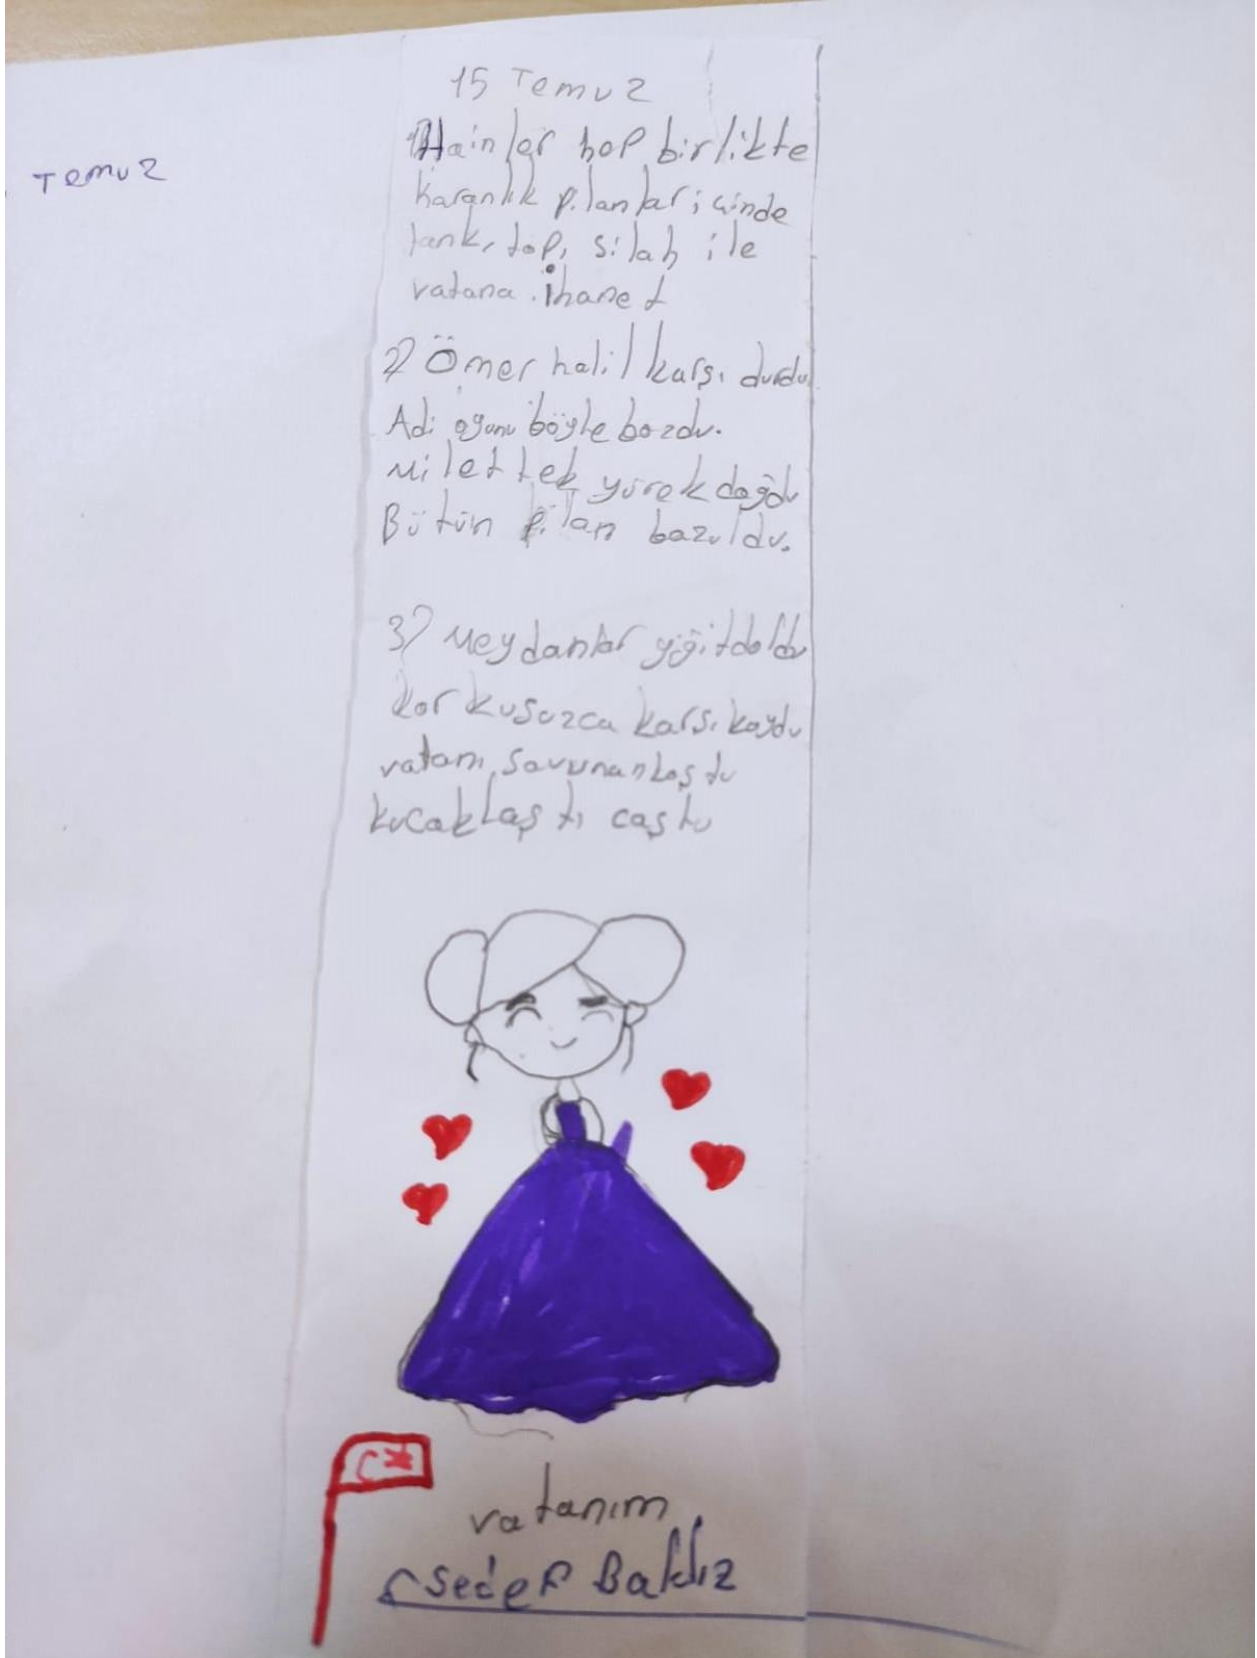 15 Temuz
Temuz
1) Hainler hep birlikte
karanlık pılanlar içinde
tank, top, silah ile
vatana ihanet
2) Ömer halil karşı durdu
Adi oyunu böyle bozdu.
Milet tek yürek doğdu
Bütün pılan bozuldu.
3) Meydanlar yiğit doldu
korkusuzca karşı koydu
vatanı savunan koştu
kucaklaştı coştu
vatanım
Sedef